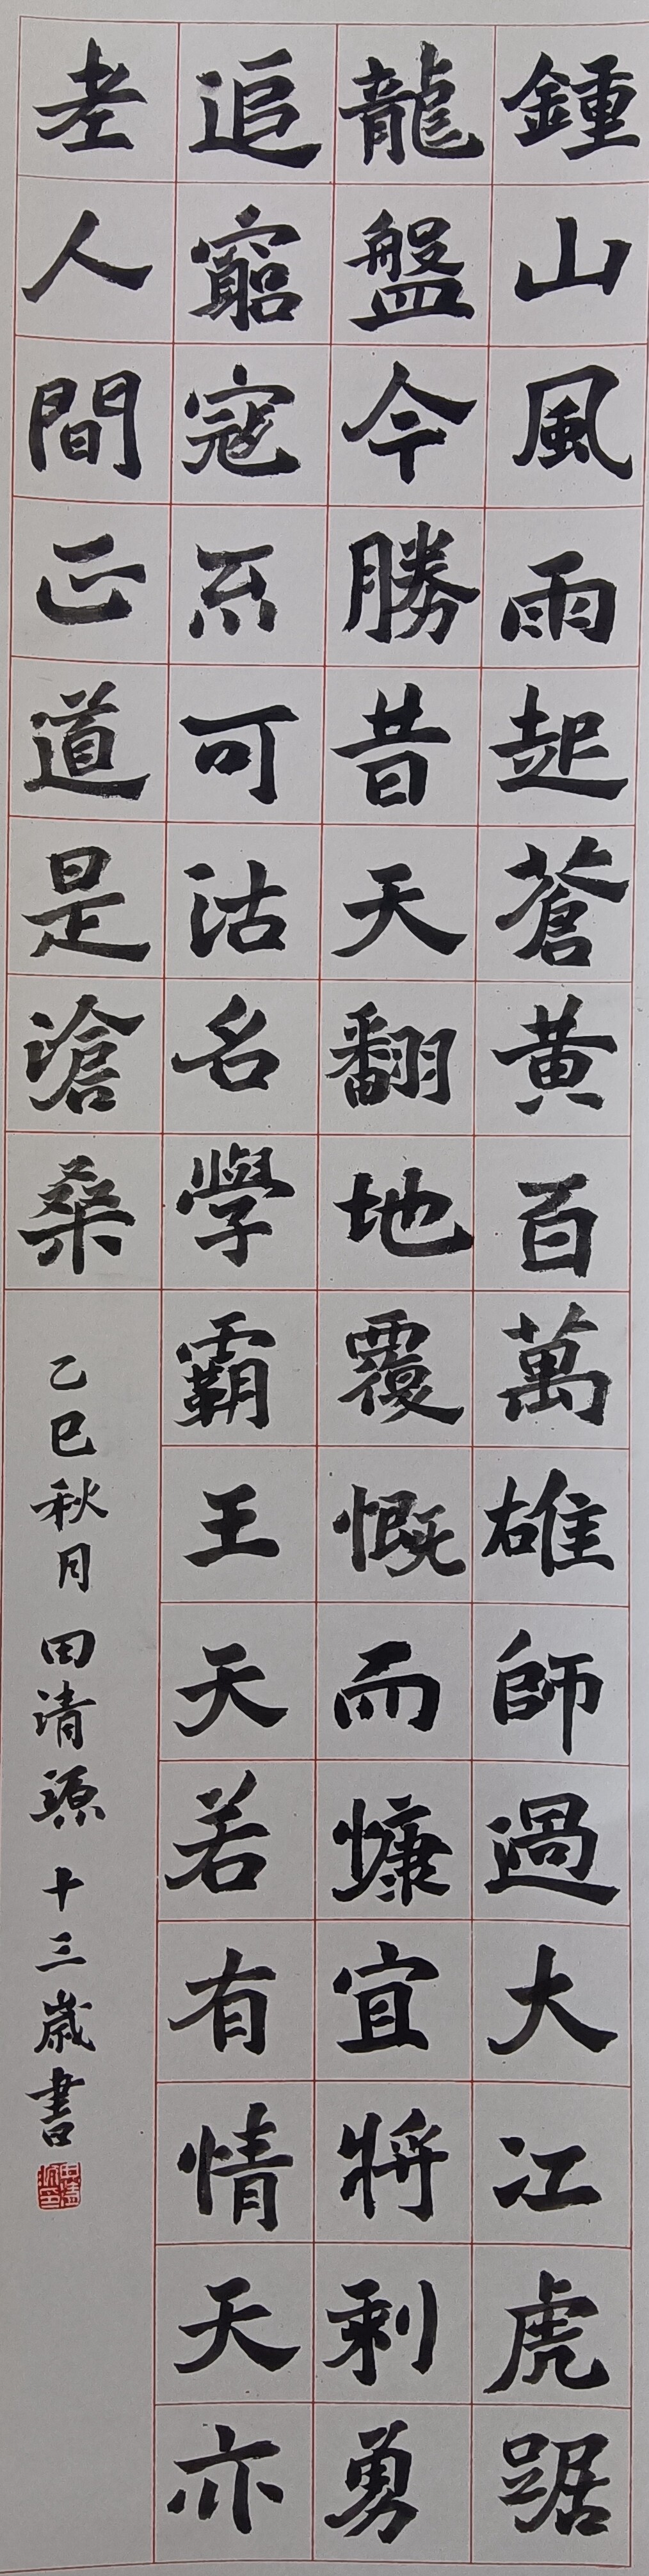 鍾山風雨起蒼黄百萬雄師過大江虎踞
龍盤今勝昔天翻地覆慨而慷宜將剩勇
追竆寇不可沽名學霸王天若有情天亦
老人間正道是滄桑
乙巳秋月 田清源 十三歲書
田清源印